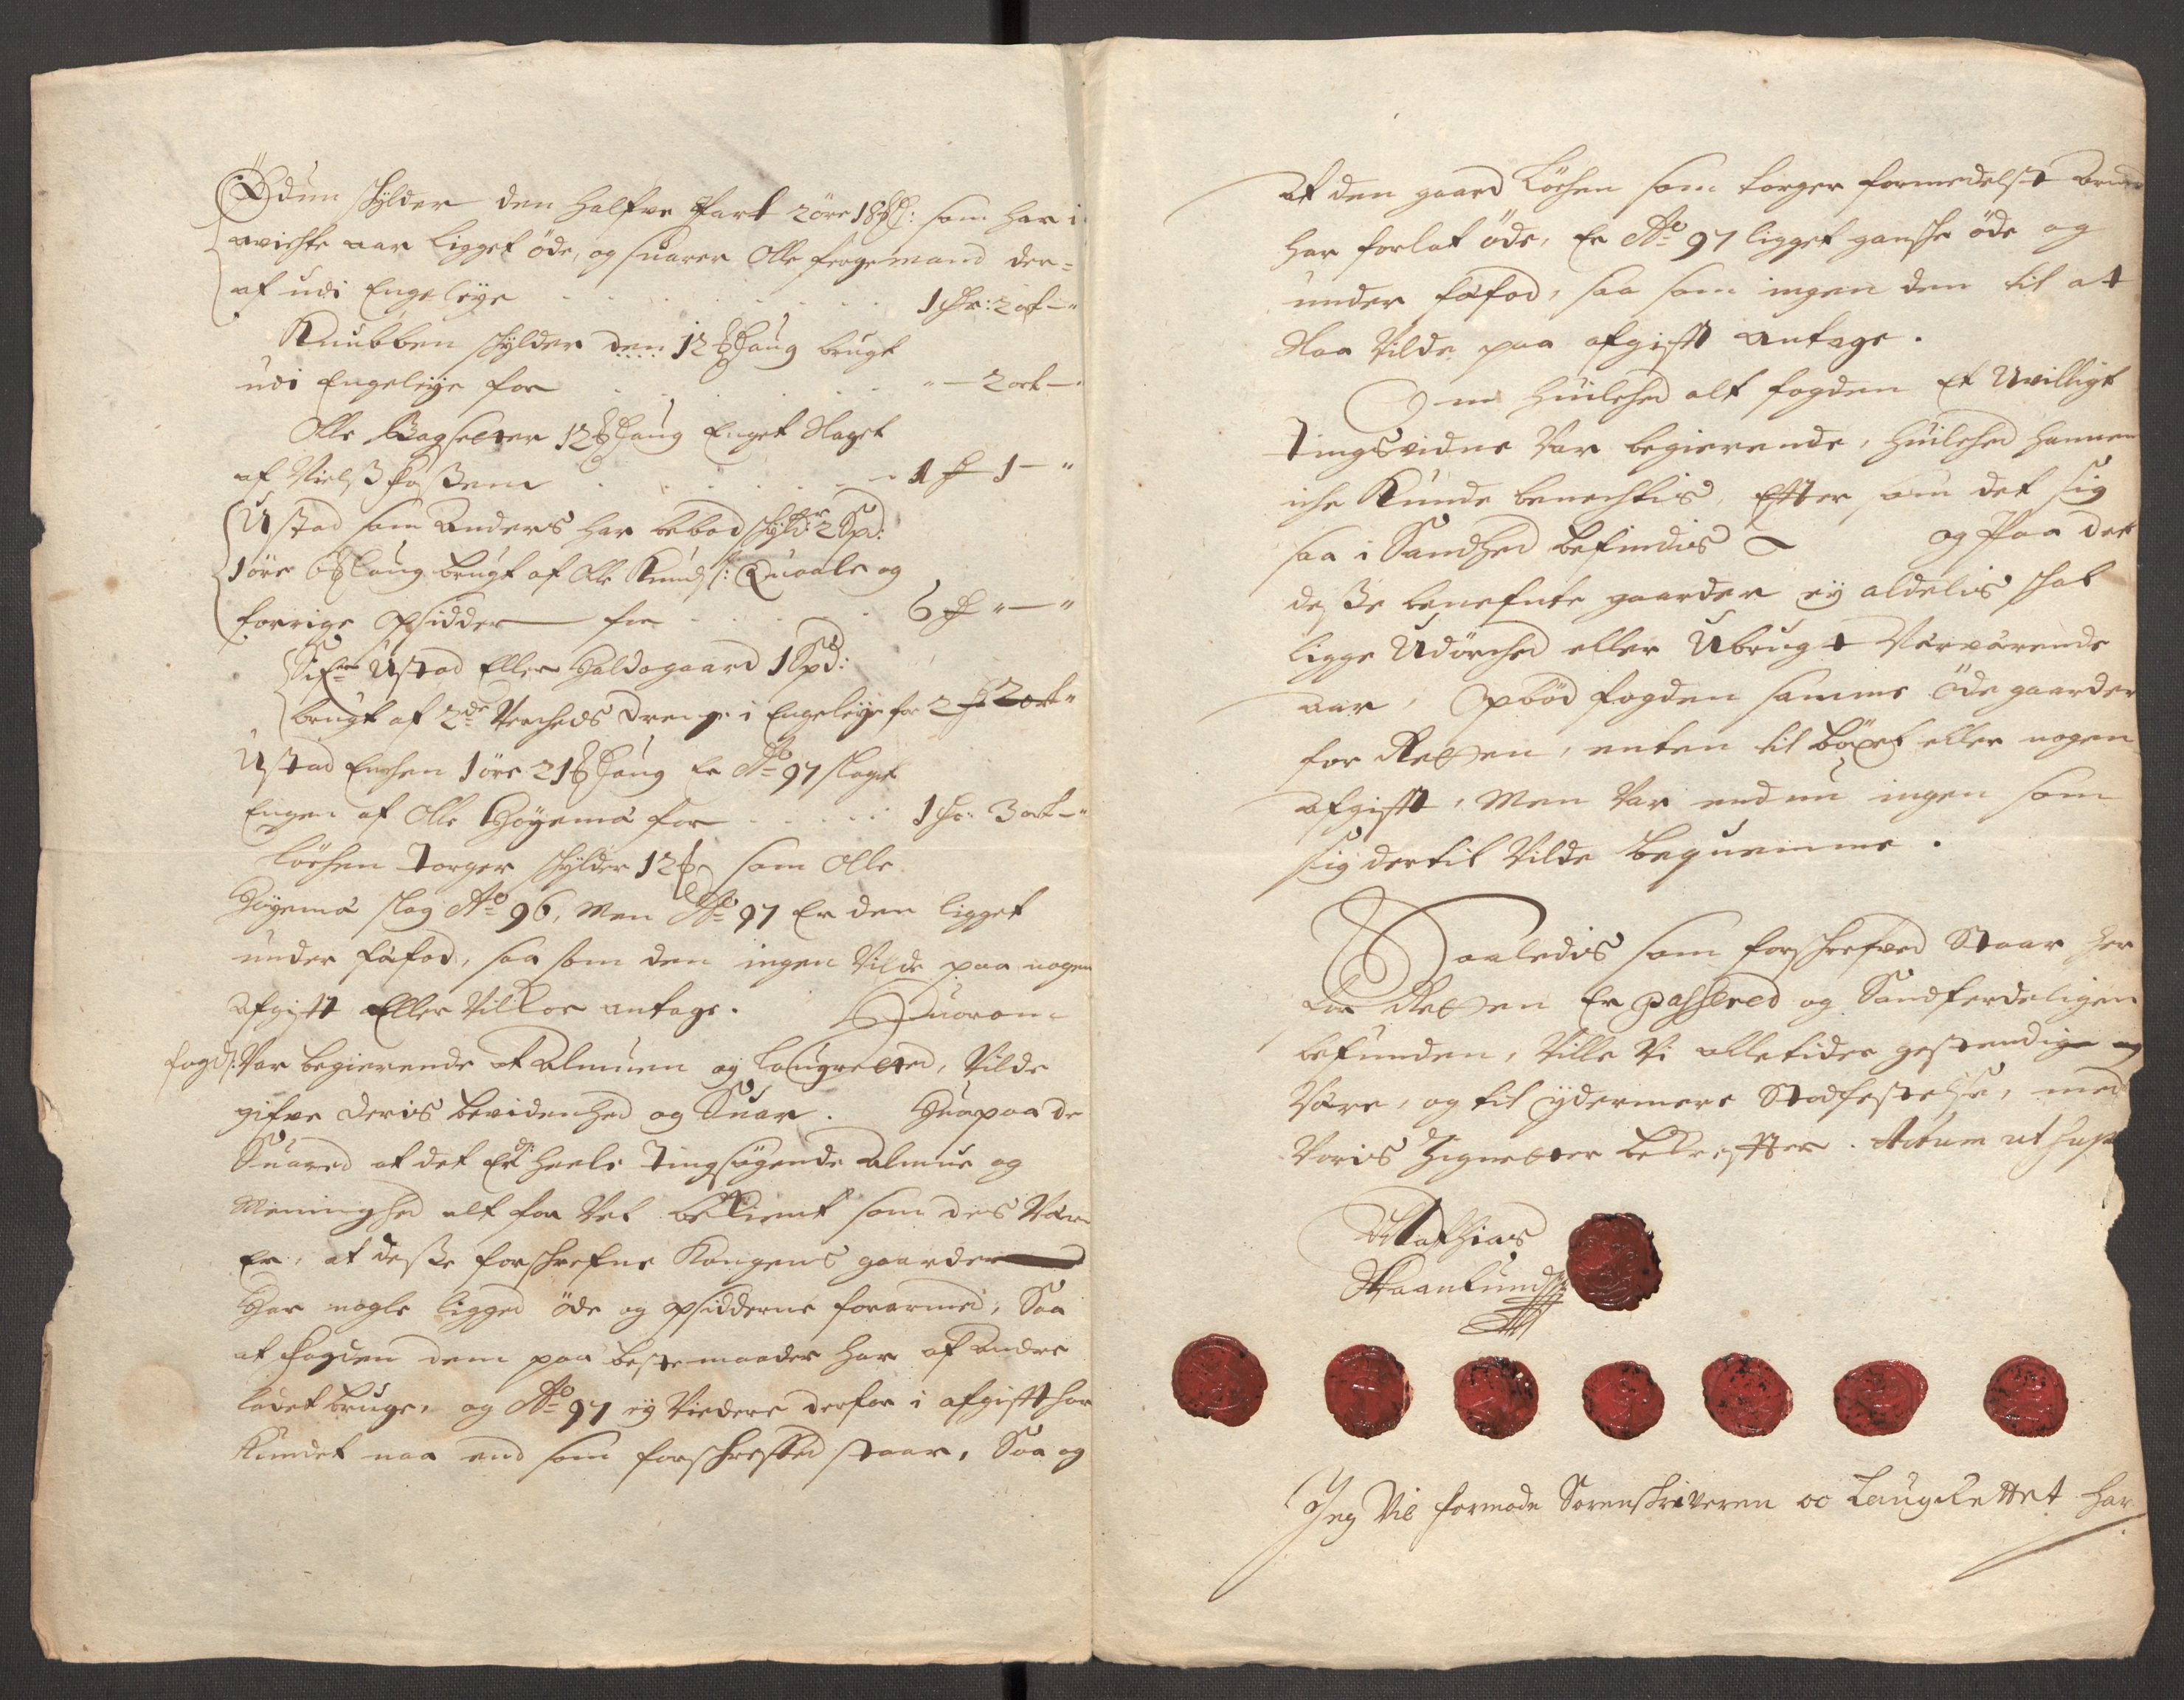 Ödun schylder den halfve Part 2 öre 18 : som har i
aar ligget öde, og suarer Olle fergemand der=
af udi Engeleye 1 : 2 ort - "
Knubben schylder den 12 laug brugt
udi Engeleye for " - 2 ort - "
Olle Bagsetter 12 laug Enget slaget
af Nielß foßem 1 - 1 - "
Ustad som Anders har bebod schylder 2 Spd:
1 öre 6 laug brugt af Olle Knuds: Quaale og
forrige Opsidder for 6 " - "
Ustad Eller Haldogaard 1 Spd:
brugt af 2de Drenge i Engeleye for 2 2 ort "
Ustad Enchen 1 öre 21 laug Er Ao 97 slaget
Engen af Olle Höyemå for 1 : 3 ort - "
Löchen Torger schylder 12 som Olle
Höyemå slog Ao 96, Men Ao 97 Er den ligget
under fåfod, saa som den ingen Vilde paa nogen
Afgift Eller Vilkor antage. Huorom
fogd: Var begierende at Almuen og Laugretted, Vilde
gifve deris bevidenhed og Suar. Huorpaa de
Suared at det Er heele Tingsögende Almue og
Meninghed alt for Vel bekient som des Vær
Er, at deße forschrefne Kongens gaarder
Har nogle ligged öde og Opsidderne forarmed, Saa
at fogden dem paa beste maader har af Andre
ladet bruge, og Ao 97 ey Viedere derfor i afgift har
Kundet naa end som forschrefved staar, Saa og
at den gaard Löchen som torger formedelst
har forlat öde, Er Ao 97 ligget gansche öde og
under fåfod, saa som ingen den til at
Slaa Vilde paa afgift antage.
Om huilched alt fogden Et Uvilligt
Tingsvidne Var begierende, huilched hannem
iche Kunde benechtis, Efter som det sig
saa i Sandhed befindis og Paa det
deße benefnte gaarder ey aldelis schal
ligge Udörched eller Ubrugt Nærværende
aar, Opböd fogden samme Öde gaarder
for Retten, enten til böxel eller nogen
afgift, Men Var endnu ingen som
sig dertil Vilde beqvemme.
Saaledis som forschrefved Staar her
for Retten Er passered og Sandferdeligen
befunden, Ville Vi alletider gestendige og
Være, og til ydermere Stadfestelse, med
Voris Zigneter bekrefter. Actum ut supr
Mathias
Schaanlund
Jeg Vil formode Sorenskriveren oc Laugrettet har